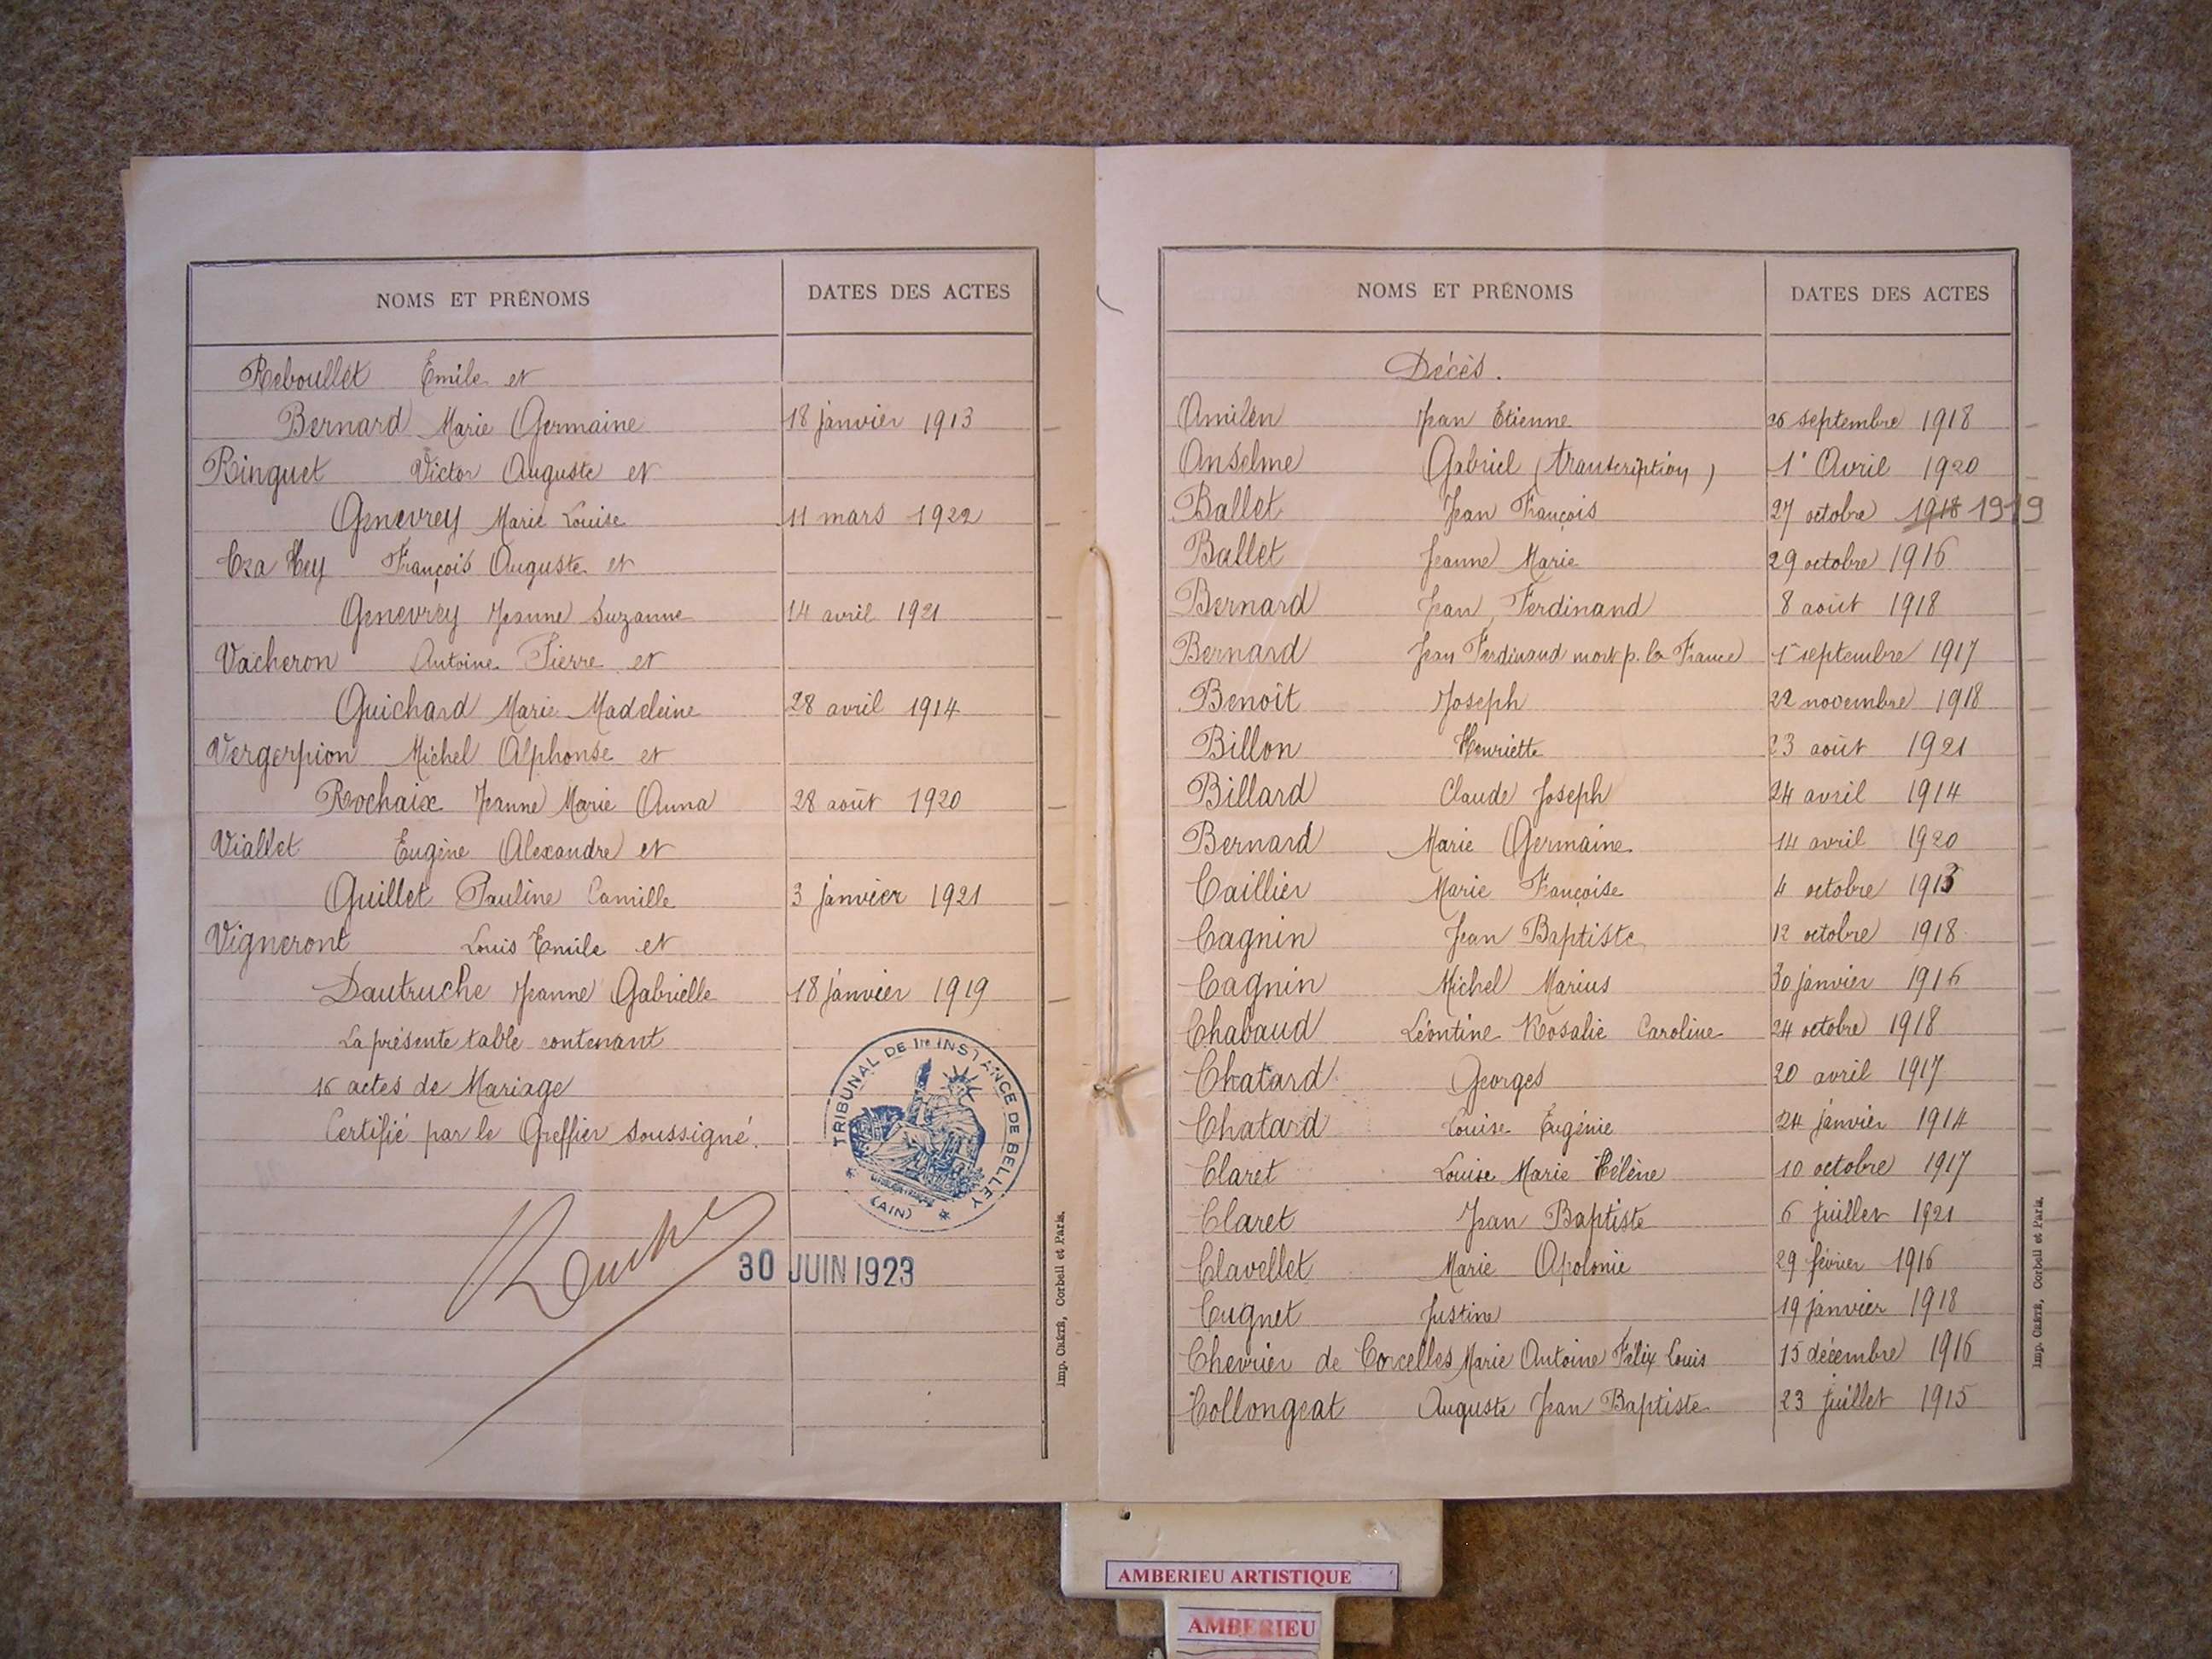 NOMS ET PRÉNOMS DATES DES ACTES
Reboullet Emile et
Bernard Marie Germaine 18 janvier 1913
Ringuet Victor Auguste et
Genevrey Marie Louise 11 mars 1922
François Auguste et
Genevrey Jeanne Suzanne 14 avril 1921
Vacheron Antoine Pierre et
Guichard Marie Madeleine 28 avril 1914
Vergerpion Michel Alphonse et
Rochaix Jeanne Marie Anna 28 août 1920
Viallet Eugène Alexandre et
Guillet Pauline Camille 3 janvier 1921
Vigneront Louis Emile et
Dautruche Jeanne Gabrielle 18 janvier 1919
La présente table contenant
16 actes de Mariage
Certifié par le Greffier soussigné.
TRIBUNAL DE 1re INSTANCE DE BELLEY
(AIN)
30 JUIN 1923
Imp. CRÉTÉ, Corbeil et Paris.
NOMS ET PRÉNOMS DATES DES ACTES
Décès.
Amilen Jean Etienne 26 septembre 1918
Anselme Gabriel (transcription) 1er Avril 1920
Ballet Jean François 27 octobre 1918 1919
Ballet Jeanne Marie 29 octobre 1916
Bernard Jean Ferdinand 8 août 1918
Bernard Jean Ferdinand mort p. la France 1er septembre 1917
Benoît Joseph 22 novembre 1918
Billon Henriette 23 août 1921
Billard Claude Joseph 24 avril 1914
Bernard Marie Germaine 14 avril 1920
Caillier Marie Françoise 4 octobre 1913
Cagnin Jean Baptiste 12 octobre 1918
Cagnin Michel Marius 30 janvier 1916
Chabaud Léontine Rosalie Caroline 24 octobre 1918
Chatard Georges 20 avril 1917
Chatard Louise Eugénie 24 janvier 1914
Claret Louise Marie Hélène 10 octobre 1917
Claret Jean Baptiste 6 juillet 1921
Clavellet Marie Apolonie 29 février 1916
Cugnet Justine 19 janvier 1918
Chevrier de Corcelles Marie Antoine Félix Louis 15 décembre 1916
Collongeat Auguste Jean Baptiste 23 juillet 1915
Imp. CRÉTÉ, Corbeil et Paris.
AMBERIEU ARTISTIQUE
AMBERIEU